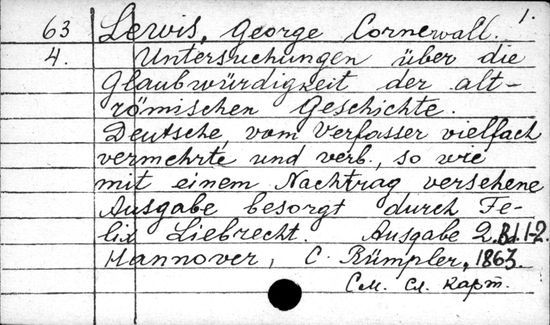 1.
63 Lewis, George Cornewall.
4. Untersuchungen über die
Glaubwürdigkeit der alt-
römischen Geschichte.
Deutsche, vom Verfasser vielfach
vermehrte und verb., so wie
mit einem Nachtrag versehene
Ausgabe besorgt durch Fe-
lix Liebrecht. Ausgabe 2. Bd. 1-2.
Hannover, C. Rümpler, 1863.
См. сл. карт.